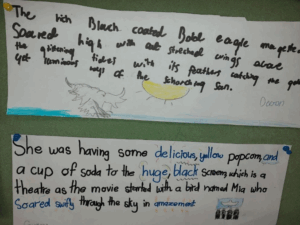 The rich Black coated Bold eagle
Soared high with out stretched wings above
the glistening tides with its feathers catching the
yet luminous rays of the Schorching Sun.
She was having some delicious, yellow popcorn, and
a cup of soda to the huge, black screen, which is a
theatre as the movie started with a bird named Mia who
Soared swiftly through the sky in amazement